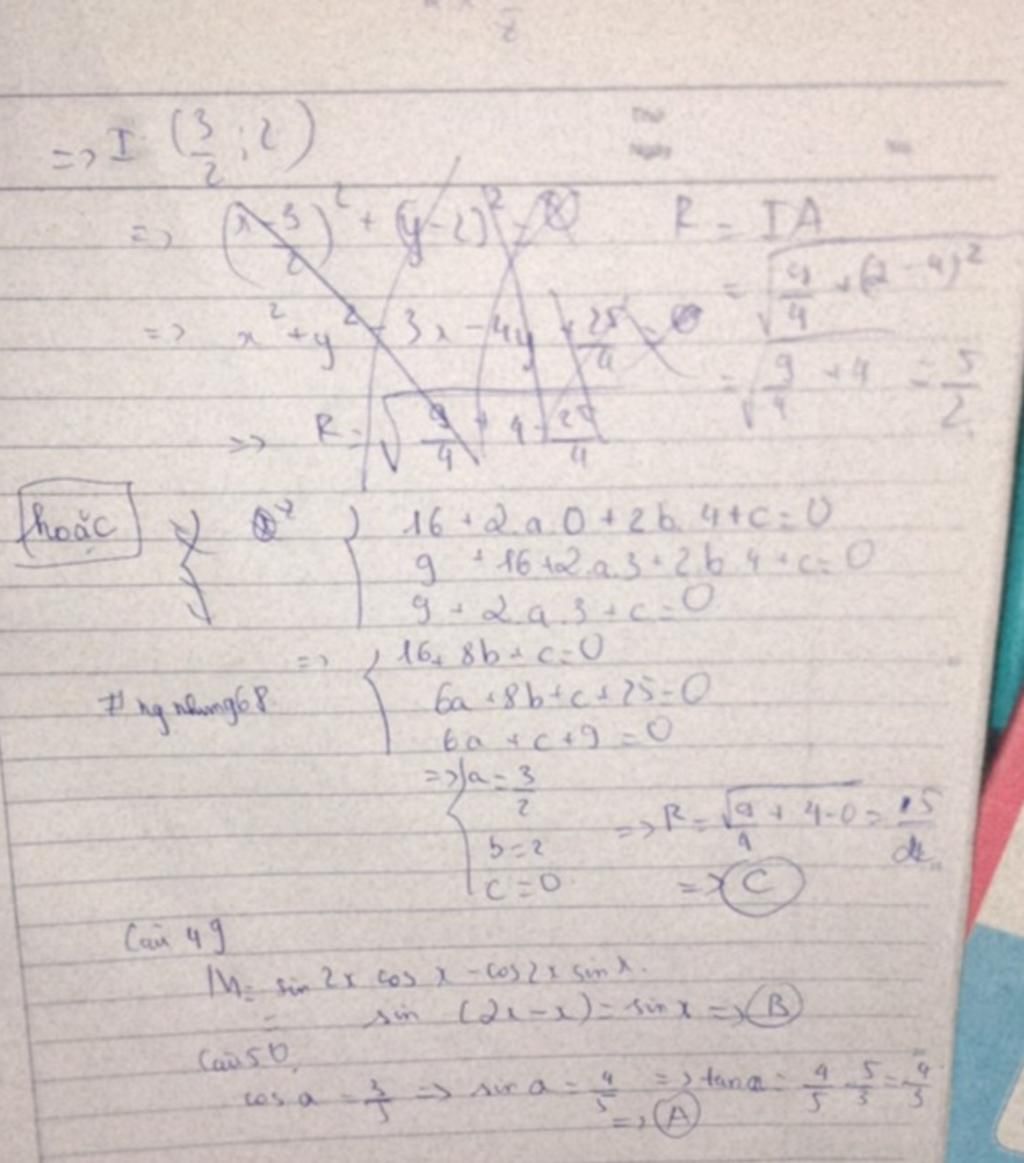 => I (3/2 ; 2)
=> (x - 3/2)² + (y - 2)² = R = IA
=> x² + y² - 3x - 4y + 25/4 = 0 = √(9/4 + (2 - 4)²)
=> R = √(9/4 + 4 - 25/4) = √(9/4 + 4) = 5/2
hoặc 16 + 2.a.0 + 2b.4 + c = 0
9 + 16 + 2.a.3 + 2.b.4 + c = 0
9 + 2.a.3 + c = 0
=> 16 + 8b + c = 0
# ngnhung68 6a + 8b + c + 25 = 0
6a + c + 9 = 0
=> a = 3/2
=> R = √(9/4 + 4 - 0) = 5/
b = 2
c = 0 => C
Câu 49
M = sin 2x cos x - cos 2x sin x.
= sin (2x - x) = sin x => B
Câu 50
cos a = 3/5 => sin a = 4/5 => tan a = 4/5 . 5/3 = 4/3
=> A